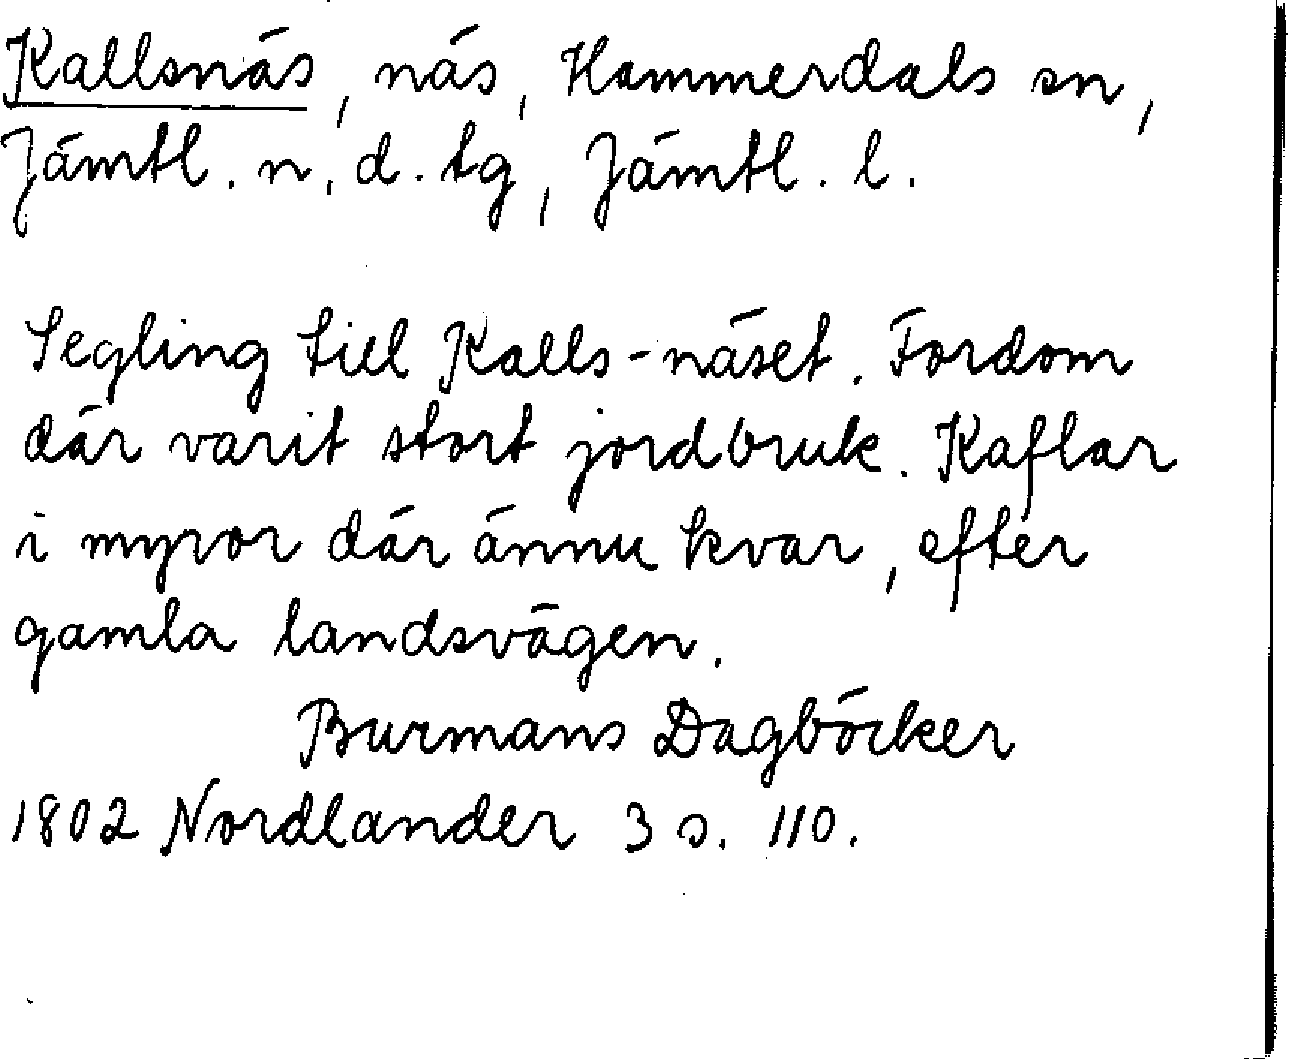 Kallsnäs, näs, Hammerdals sn,
Jämtl. n. d. tg, Jämtl. l.
Segling till Kalls-näset. Fordom
där varit stort jordbruk. Kaflar
i myror där ännu kvar, efter
gamla landsvägen.
Burmans Dagböcker
1802 Nordlander 3 s. 110.